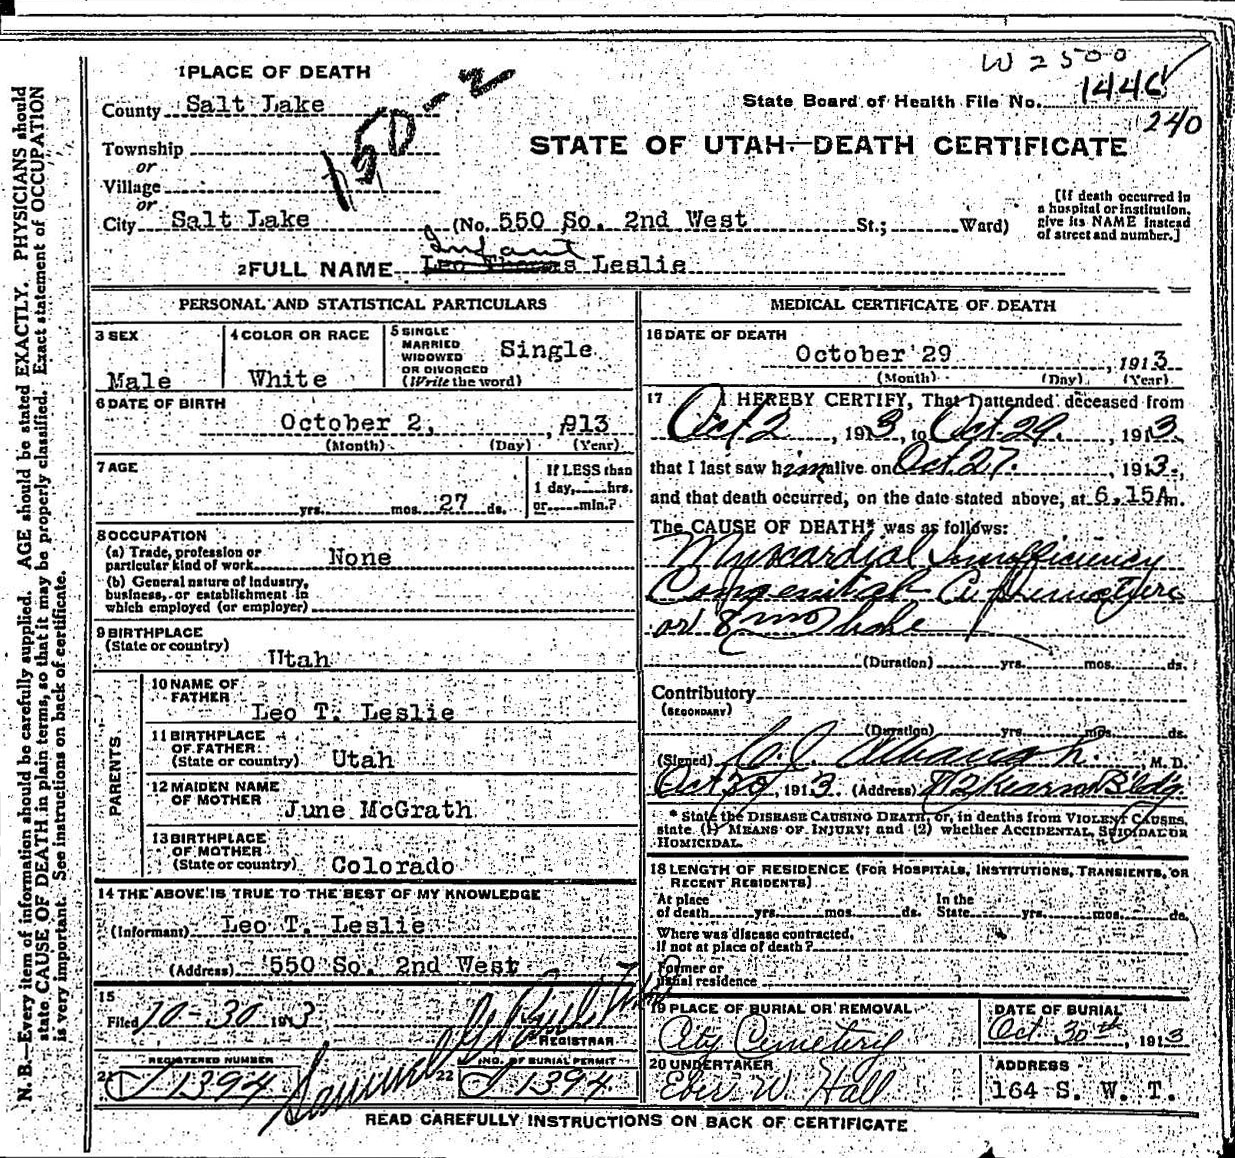 W 2500
1PLACE OF DEATH
County Salt Lake
150-2
State Board of Health File No. 1446
240
Township
or
Village
or
STATE OF UTAH—DEATH CERTIFICATE
[If death occurred in a hospital or institution, give its NAME instead of street and number.]
City Salt Lake (No. 550 So. 2nd West St.; Ward)
Infant
2FULL NAME Leo Thomas Leslie
PERSONAL AND STATISTICAL PARTICULARS
3 SEX
Male
4 COLOR OR RACE
White
5 SINGLE
MARRIED
WIDOWED
OR DIVORCED
(Write the word)
Single
6 DATE OF BIRTH
October 2, , 913
(Month) (Day) (Year)
7 AGE
yrs. mos. 27 ds.
If LESS than
1 day, hrs.
or min.?
8 OCCUPATION
(a) Trade, profession or
particular kind of work None
(b) General nature of Industry,
business, or establishment in
which employed (or employer)
9 BIRTHPLACE
(State or country)
Utah
PARENTS
10 NAME OF
FATHER
Leo T. Leslie
11 BIRTHPLACE
OF FATHER
(State or country) Utah
12 MAIDEN NAME
OF MOTHER
June McGrath
13 BIRTHPLACE
OF MOTHER
(State or country) Colorado
14 THE ABOVE IS TRUE TO THE BEST OF MY KNOWLEDGE
(Informant) Leo T. Leslie
(Address) 550 So. 2nd West
15
Filed 10-30 1913
REGISTRAR
REGISTERED NUMBER
21 1394
NO. OF BURIAL PERMIT
22 1394
MEDICAL CERTIFICATE OF DEATH
16 DATE OF DEATH
October 29 , 1913
(Month) (Day) (Year)
17 I HEREBY CERTIFY, That I attended deceased from
Oct 2 , 1913, to Oct 29. , 1913,
that I last saw him alive on Oct 27. , 1913,
and that death occurred, on the date stated above, at 6.15A m.
The CAUSE OF DEATH* was as follows:
Myocardial Insufficiency
Congenital
(Duration) yrs. mos. ds.
Contributory
(SECONDARY)
(Duration) yrs. mos. ds.
(Signed) , M. D.
Oct 30, 1913 (Address) Kearns Bldg.
* State the DISEASE CAUSING DEATH, or, in deaths from VIOLENT CAUSES,
state (1) MEANS OF INJURY; and (2) whether ACCIDENTAL, SUICIDAL OR
HOMICIDAL.
18 LENGTH OF RESIDENCE (FOR HOSPITALS, INSTITUTIONS, TRANSIENTS, OR
RECENT RESIDENTS)
At place
of death yrs. mos. ds.
In the
State yrs. mos. ds.
Where was disease contracted,
if not at place of death?
Former or
usual residence
19 PLACE OF BURIAL OR REMOVAL
City Cemetery
DATE OF BURIAL
Oct 30th, 1913
20 UNDERTAKER
Eber W. Hall
ADDRESS
164 S. W. T.
READ CAREFULLY INSTRUCTIONS ON BACK OF CERTIFICATE
N. B.—Every item of information should be carefully supplied. AGE should be stated EXACTLY. PHYSICIANS should
state CAUSE OF DEATH in plain terms, so that it may be properly classified. Exact statement of OCCUPATION
is very important. See instructions on back of certificate.